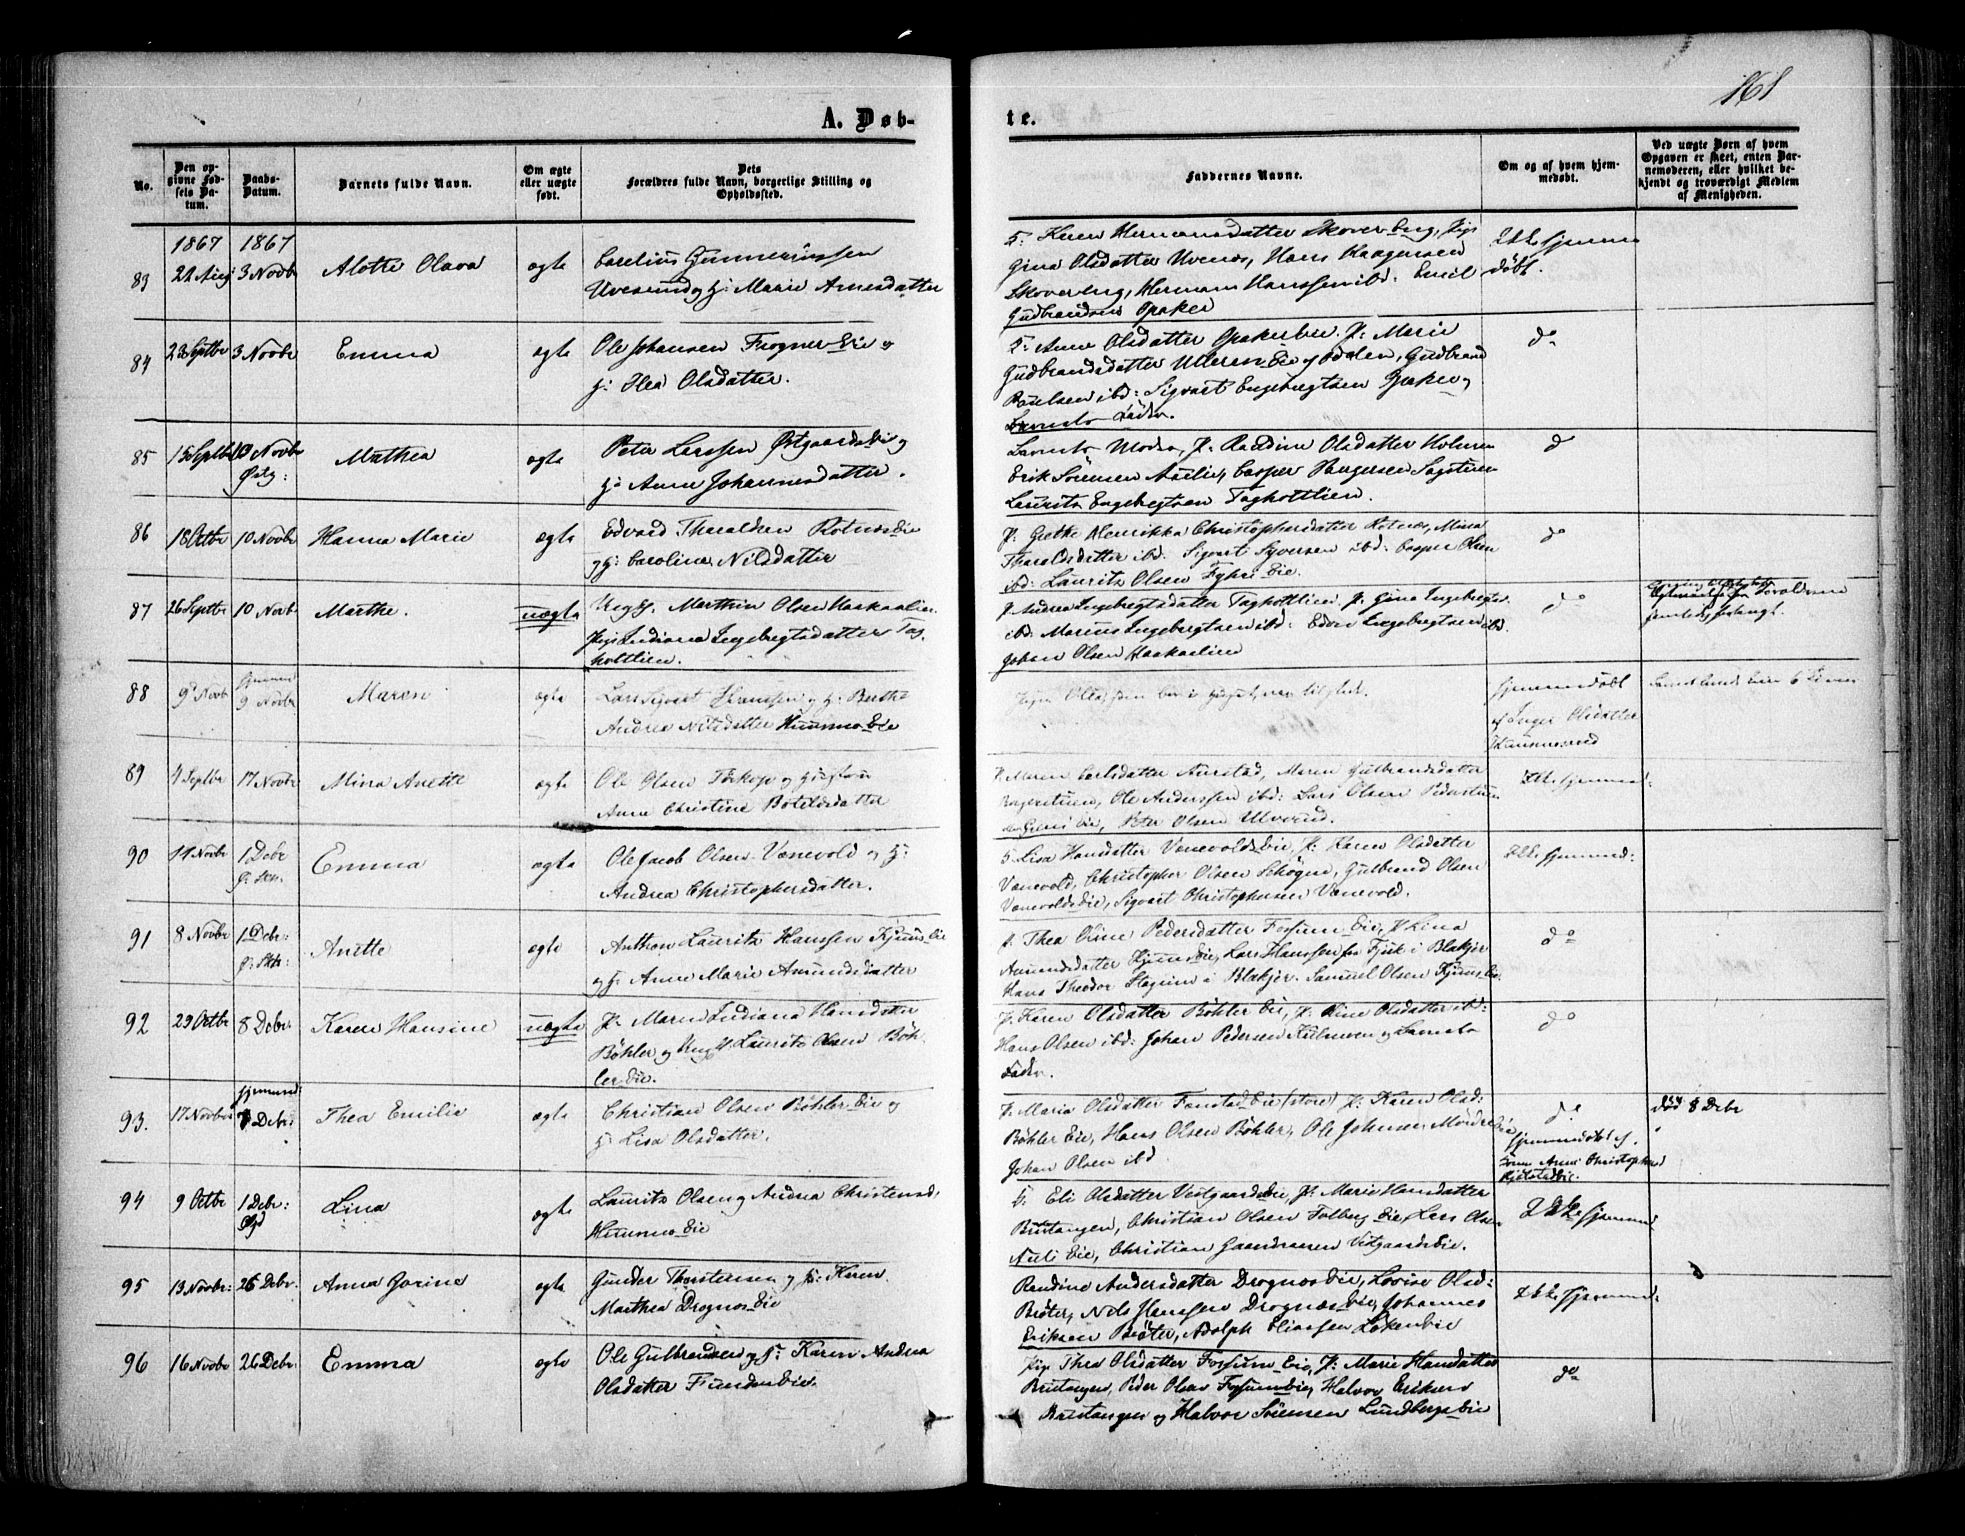 161
A. Døb-
te.
No.
Den opgivne Fødsels Datum.
Daabs-Datum.
Barnets fulde Navn.
Om ægte eller uægte født.
Dets Forældres fulde Navn, borgerlige Stilling og Opholdssted.
Faddernes Navne.
Om og af hvem hjemmedøbt.
Ved uægte Børn af hvem Opgaven er skeet, enten Barnemoderen, eller hvilket bekjendt og troværdigt Medlem af Menigheden.
1867 1867
83 21 Aug 3 Novbr Alotte Olava ægte Carelius Gunneriussen
Uvesund og H: Marie Arnesdatter
G: Karen Hermansdatter Skoverberg, Pige
Gina Olsdatter Uvenes, Hans Kaagersen
Skoverberg, Herman Hanssen ibd: Emil
Gudbrandsen Opaker
Ikke hjemme
døbt.
84 23 Septbr 3 Novbr Emma ægte Ole Johansen Frogner Eie og
H: Thea Olsdatter.
G: Anne Olsdatter Opaker Eie. P: Marie
Gudbrandsdatter Ulleren Eie og Odalen, Gudbrand
Paulsen ibd: Sigvart Engebregtsen Opaker,
Barnets Fader.
do
85 15 Septbr 10 Novbr Mathea ægte Peter Larssen Østgaards Eie og
H: Anne Johannesdatter.
Barnets Moder, P: Randine Olsdatter Holmen
Erik Sørensen Aulie, Casper Haagensen Sagstuen
Laurits Engebregtsen Taghottlien.
do
86 18 Octbr 10 Novbr Hanna Marie ægte Edvard Tharaldsen Rotnes Eie
og H: Caroline Nilsdatter
P: Grethe Henrikka Christophersdatter Rotnes, Mina
Tharaldsdatter ibd. Sigvart Syversen ibd: Casper Olsen
ibd: Laurits Olsen Fyhri Eie.
do
87 26 Septbr 10 Novbr Marthe. uægte Ungk. Marthin Olsen Haakaalien
Pige Indiana Ingebregtsdatter Tag-
hottlien.
P: Andrea Ingebregtsdatter Taghottlien, P: Gina Ingebregtsd
ibd: Marius Ingebregtsen ibd: Edvin Ingebregtsen ibd.
Johan Olsen Haakaalien
do
88 9 Novbr hjemmed 9 Novbr Maren ægte Lars Sigvart Hanssen og H: Berthe
Andrea Nilsdatter Hunnes Eie
hjemmedøbt
af Inger Olsdatter
89 4 Septbr 17 Novbr Mina Anette ægte Ole Olsen Torkop og Hustru
Anne Christine Botelsdatter
P: Maren Carlsdatter Aurstad, Maren Gulbrandsdatter
Ole Anderssen ibd: Lars Olsen Pederstuen
Eie, Peter Olsen Ulvund.
Ikke hjemmed:
90 14 Novbr 1 Debr Emma ægte Ole Jacob Olsen Vænevold og H:
Andrea Christophersdatter.
G. Lisa Hansdatter Vænevolds Eie, P: Karen Olsdatter
Vænevold, Christopher Olsen Schøgne, Gulbrand Olsen
Vænevolds Eie, Sigvart Christophersen Vænevold.
Ikke hjemmed:
91 8 Novbr 1 Debr: Anette ægte Anthon Lauritz Hanssen Kjuus Eie
og H: Anne Marie Amundsdatter
P: Thea Oline Pedersdatter Fossum Eie, P: Lina
Amundsdatter Kjuus Eie, Lars Hanssen fra Fjuk i Blakjer
Hans Theodor Stagund i Blakjer. Samuel Olsen Kjuus Eie
do
92 29 Octbr 8 Debr: Karen Hansine uægte P: Maren Indiana Hansdatter
Bøhler og Ungk. Laurits Olsen Bøh-
ler Eie.
P: Karen Olsdatter Bøhler Eie, P: Oline Olsdatter ibd:
Hans Olsen ibd: Johan Pedersen Kulmoen og Barnets
Fader.
do
93. 17 Novbr hjemmed: 7 Debr: Thea Emilie ægte Christian Olsen Bøhler Eie og
H: Lisa Olsdatter.
P: Maria Olsdatter Fonstad Eie (store) P: Karen Olsd:
Bøhler Eie, Hans Olsen Bøhler, Ole Johnsen Mordre Eie,
Johan Olsen ibd.
do
hjemmedøbt af
Kone Anne Christophersd
død 8 Debr
94 9 Octbr 1 Debr: Lina ægte Laurits Olsen og Andrea Christensd:
Hunnes Eie
G: Eli Olsdatter Vestgaards Eie, P: Marie Hansdatter
Brustangen, Christian Olsen Folberg Eie, Lars Olsen
Auli Eie, Christian Gaardraaren Vestgaards Eie.
Ikke hjemmed
95 13 Novbr: 26 Debr. Anna Gorine ægte Gunder Thorstensen og H: Karen
Marthea Drognes Eie
Randine Andersdatter Drognes Eie, Lovise Olsd:
Brøter, Nils Hanssen Drognæs Eie, Johannes
Eriksen Brøter, Adolph Eliassen Løken Eie
Ikke hjemmed:
96 16 Novbr 26 Debr: Emma ægte Ole Gulbrandsen og H: Karen Andrea
Olsdatter Funder Eie.
Pige Thea Olsdatter Fossum Eie, P: Marie Hansdatter
Brustangen, Peder Olsen Fossum Eie, Halvor Eriksen
Brustangen og Halvor Sørensen Lundbergs Eie
do